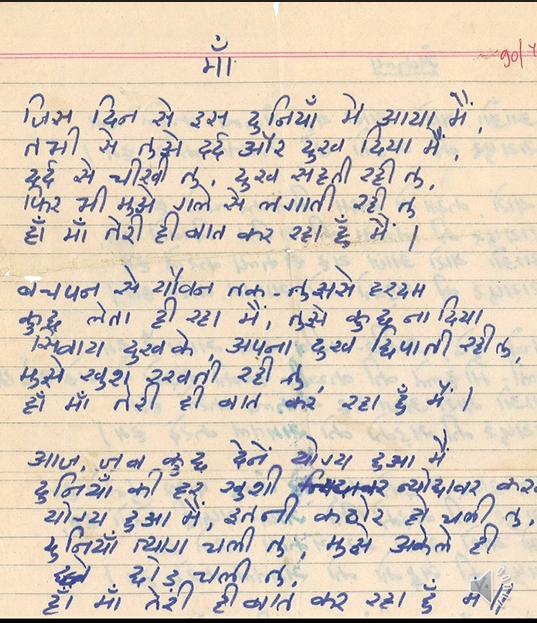 माँ
जिस दिन से इस दुनियाँ में आया मैं,
तभी से तुझे दर्द और दुख दिया मैं,
दर्द से चीखी तु, दुख सहती रही तु,
फिर भी मुझे गले से लगाती रही तु
हाँ माँ तेरी ही बात कर रहा हुँ मैं।
बचपन से यौवन तक - तुझसे हरदम
कुछ लेता ही रहा मैं, तुझे कुछ ना दिया
सिवाय दुख के, अपना दुख छिपाती रही तु,
मुझे खुश रखती रही तु,
हाँ माँ तेरी ही बात कर रहा हुँ मैं।
आज, जब कुछ देने योग्य हुआ मैं
दुनियाँ की हर खुशी न्योछावर कर
योग्य हुआ मैं, इतनी कठोर हो चली तु,
दुनियाँ त्याग चली तु, मुझे अकेले ही
छोड़ चली तु
हाँ माँ तेरी ही बात कर रहा हुँ मैं